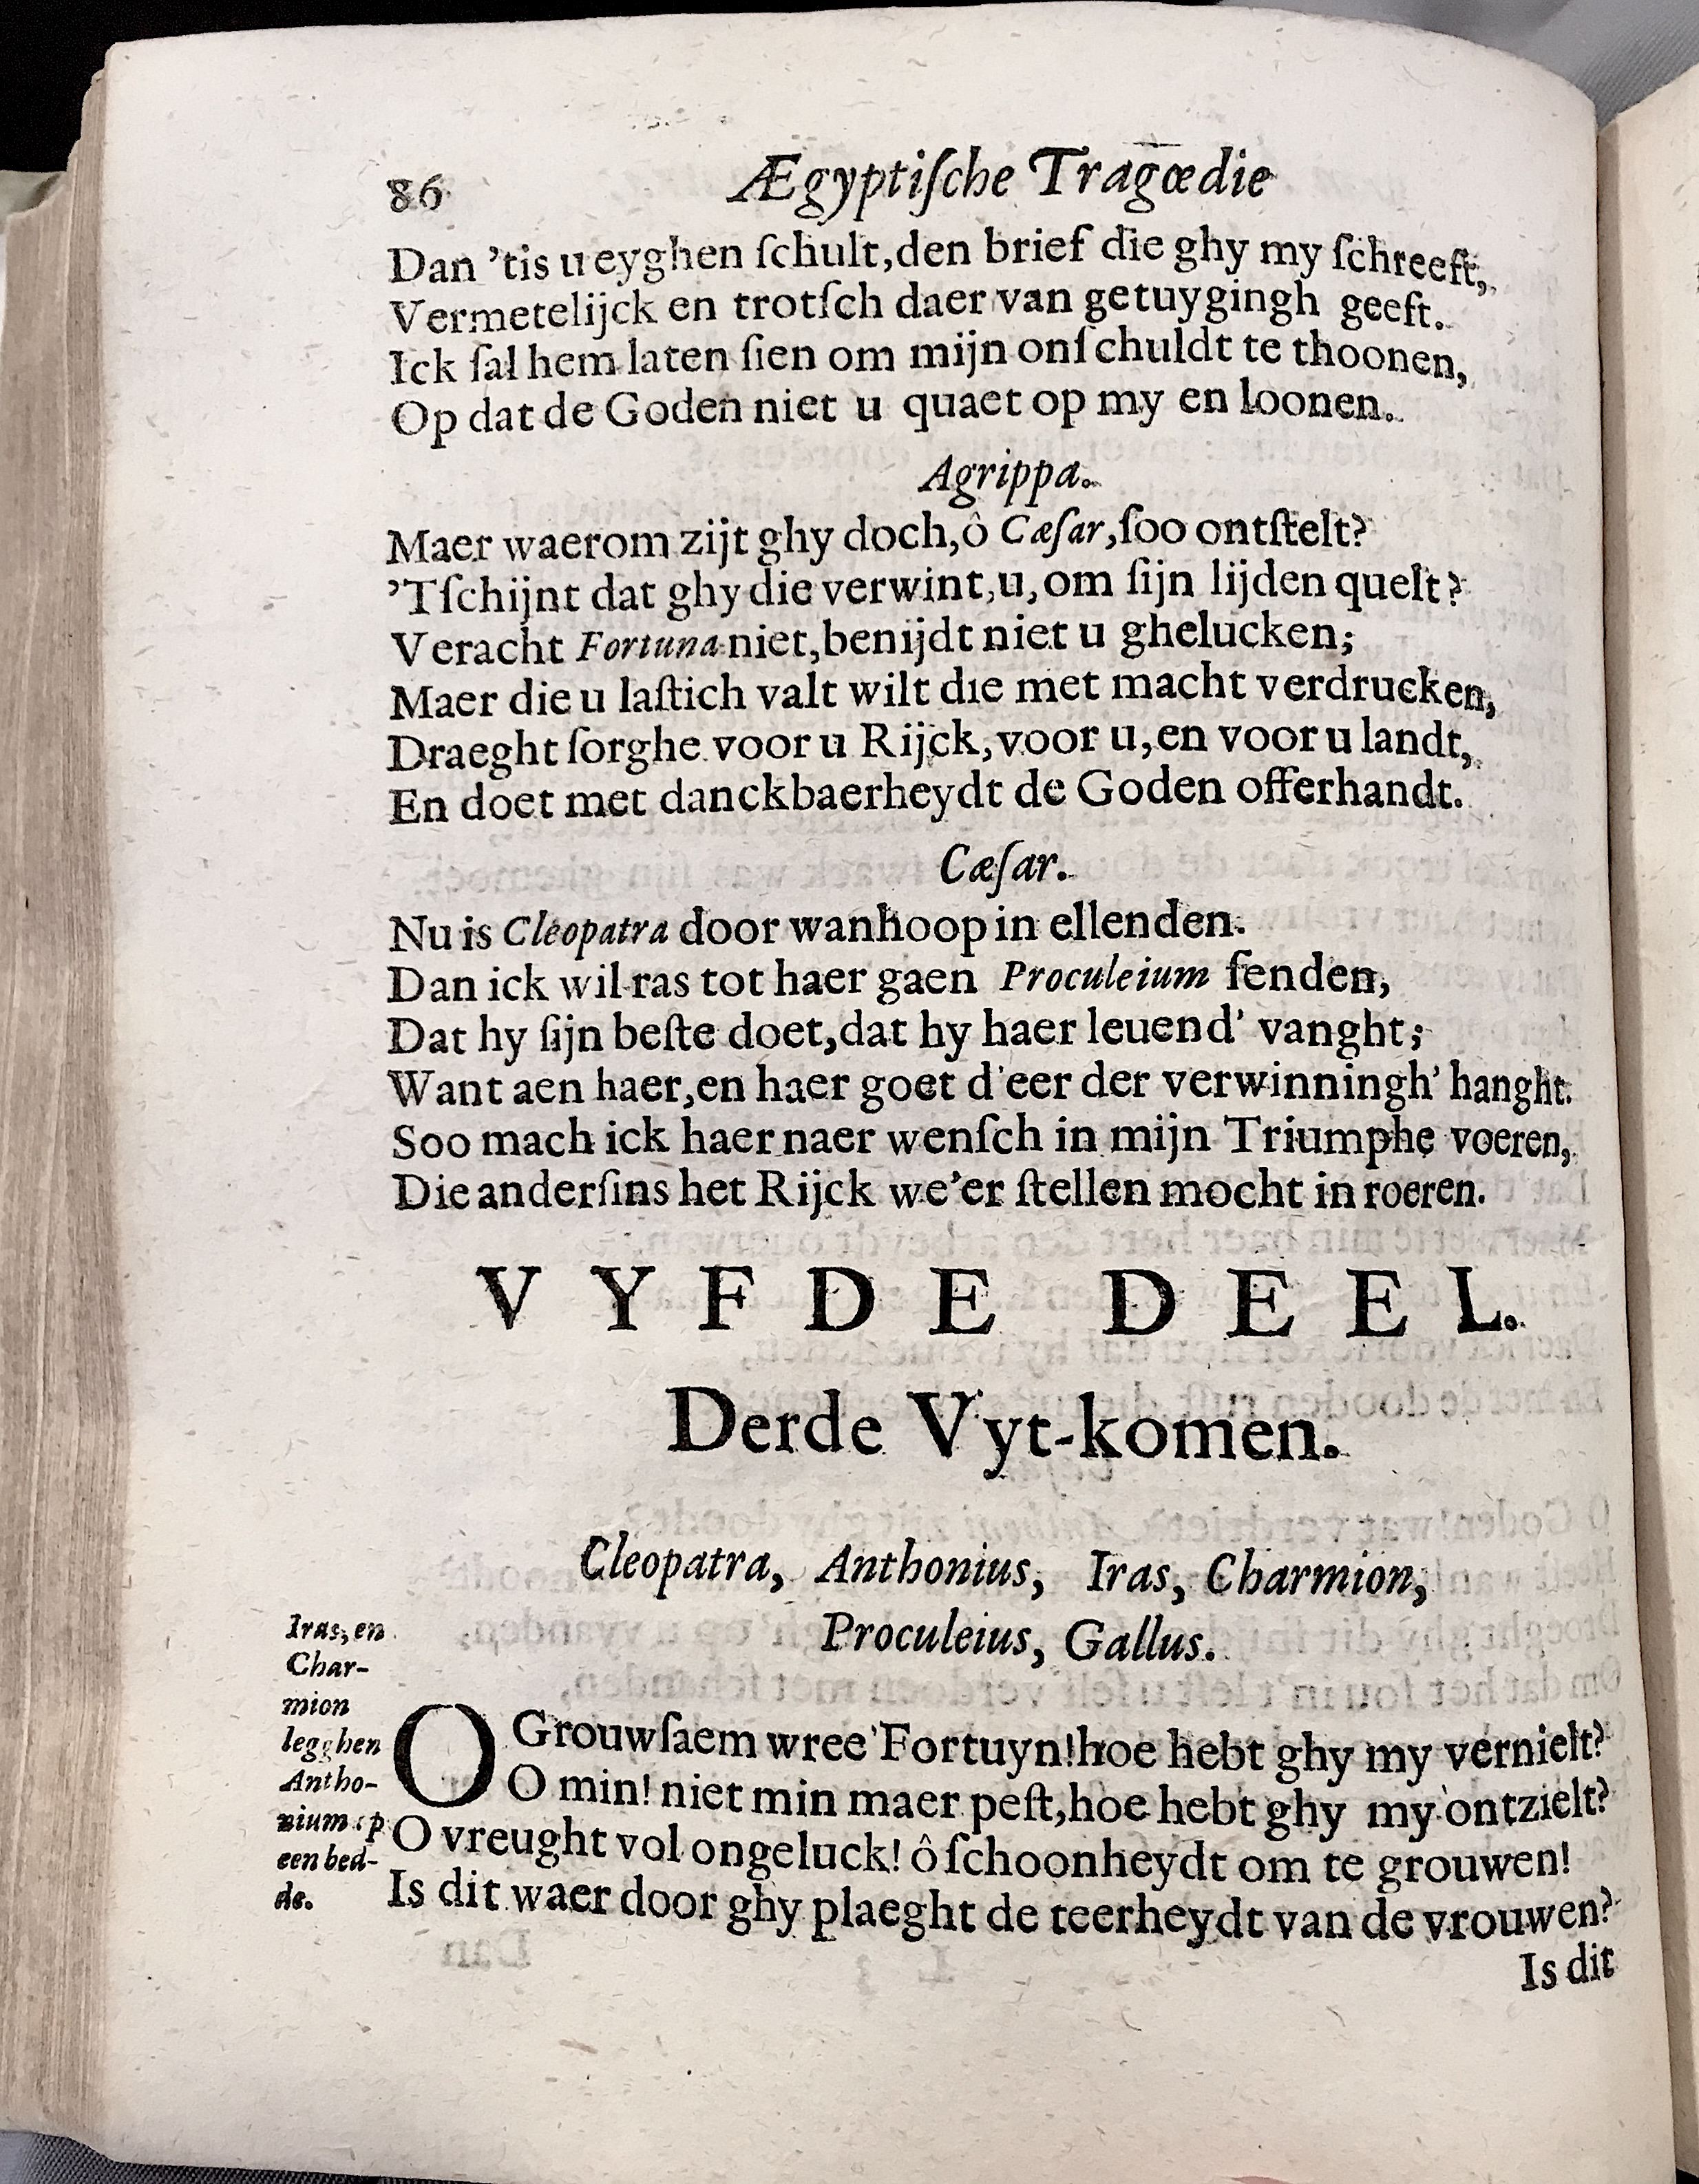 86 Ægyptiſche Tragœdie
Dan 'tis u eyghen ſchult, den brief die ghy my ſchreeft,
Vermetelijck en trotſch daer van getuygingh geeft.
Ick ſal hem laten ſien om mijn onſchuldt te thoonen,
Op dat de Goden niet u quaet op my en loonen.
Agrippa.
Maer waerom zijt ghy doch, ô Cæſar, ſoo ontſtelt?
'Tſchijnt dat ghy die verwint, u, om ſijn lijden quelt?
Veracht Fortuna niet, benijdt niet u ghelucken;
Maer die u laſtich valt wilt die met macht verdrucken,
Draeght ſorghe voor u Rijck, voor u, en voor u landt,
En doet met danckbaerheydt de Goden offerhandt.
Cæſar.
Nu is Cleopatra door wanhoop in ellenden.
Dan ick wil ras tot haer gaen Proculeium ſenden,
Dat hy ſijn beſte doet, dat hy haer leuend' vanght;
Want aen haer, en haer goet d'eer der verwinningh' hanght.
Soo mach ick haer naer wenſch in mijn Triumphe voeren,
Die anderſins het Rijck we'er ſtellen mocht in roeren.
VYFDE DEEL.
Derde Vyt-komen.
Cleopatra, Anthonius, Iras, Charmion,
Proculeius, Gallus.
Iras, en
Char-
mion
legghen
Antho-
nium op
een bed-
de.
O Grouwſaem wree' Fortuyn! hoe hebt ghy my vernielt?
O min! niet min maer peſt, hoe hebt ghy my ontzielt?
O vreught vol ongeluck! ô ſchoonheydt om te grouwen!
Is dit waer door ghy plaeght de teerheydt van de vrouwen?
Is dit